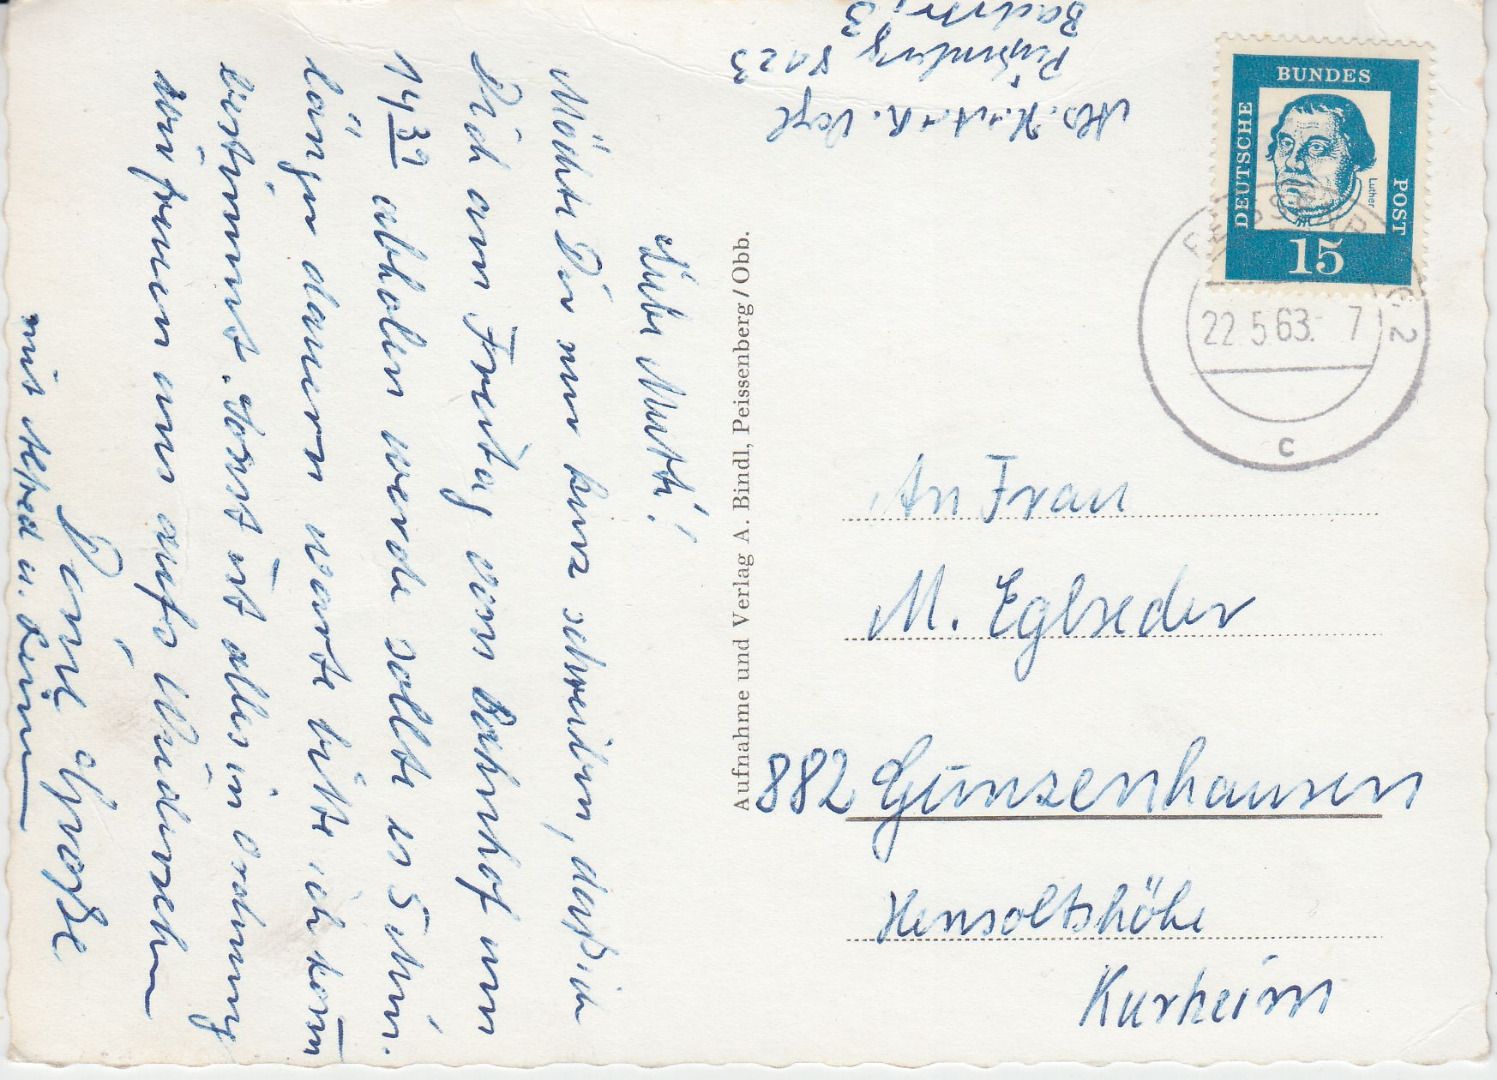 Abs. H. u. A. R. Vogl
Peißenberg 8123
Bachstr. 3
Liebe Mutti!
Möchte Dir nur kurz schreiben, daß ich
Dich am Freitag vom Bahnhof um
14 39 abholen werde sollte es 5 Min.
länger dauern warte bitte ich kom̅
bestimmt. Sonst ist alles in Ordnung
wir freuen uns aufs Wiedersehen
Grüße
mit Alfred u.
Aufnahme und Verlag A. Bindl, Peissenberg / Obb.
DEUTSCHE
BUNDES
POST
Luther
15
22.5.63.- 7
2
c
An Frau
M. Eglseder
882 Gunzenhausen
Hensoltshöhe
Kurheim